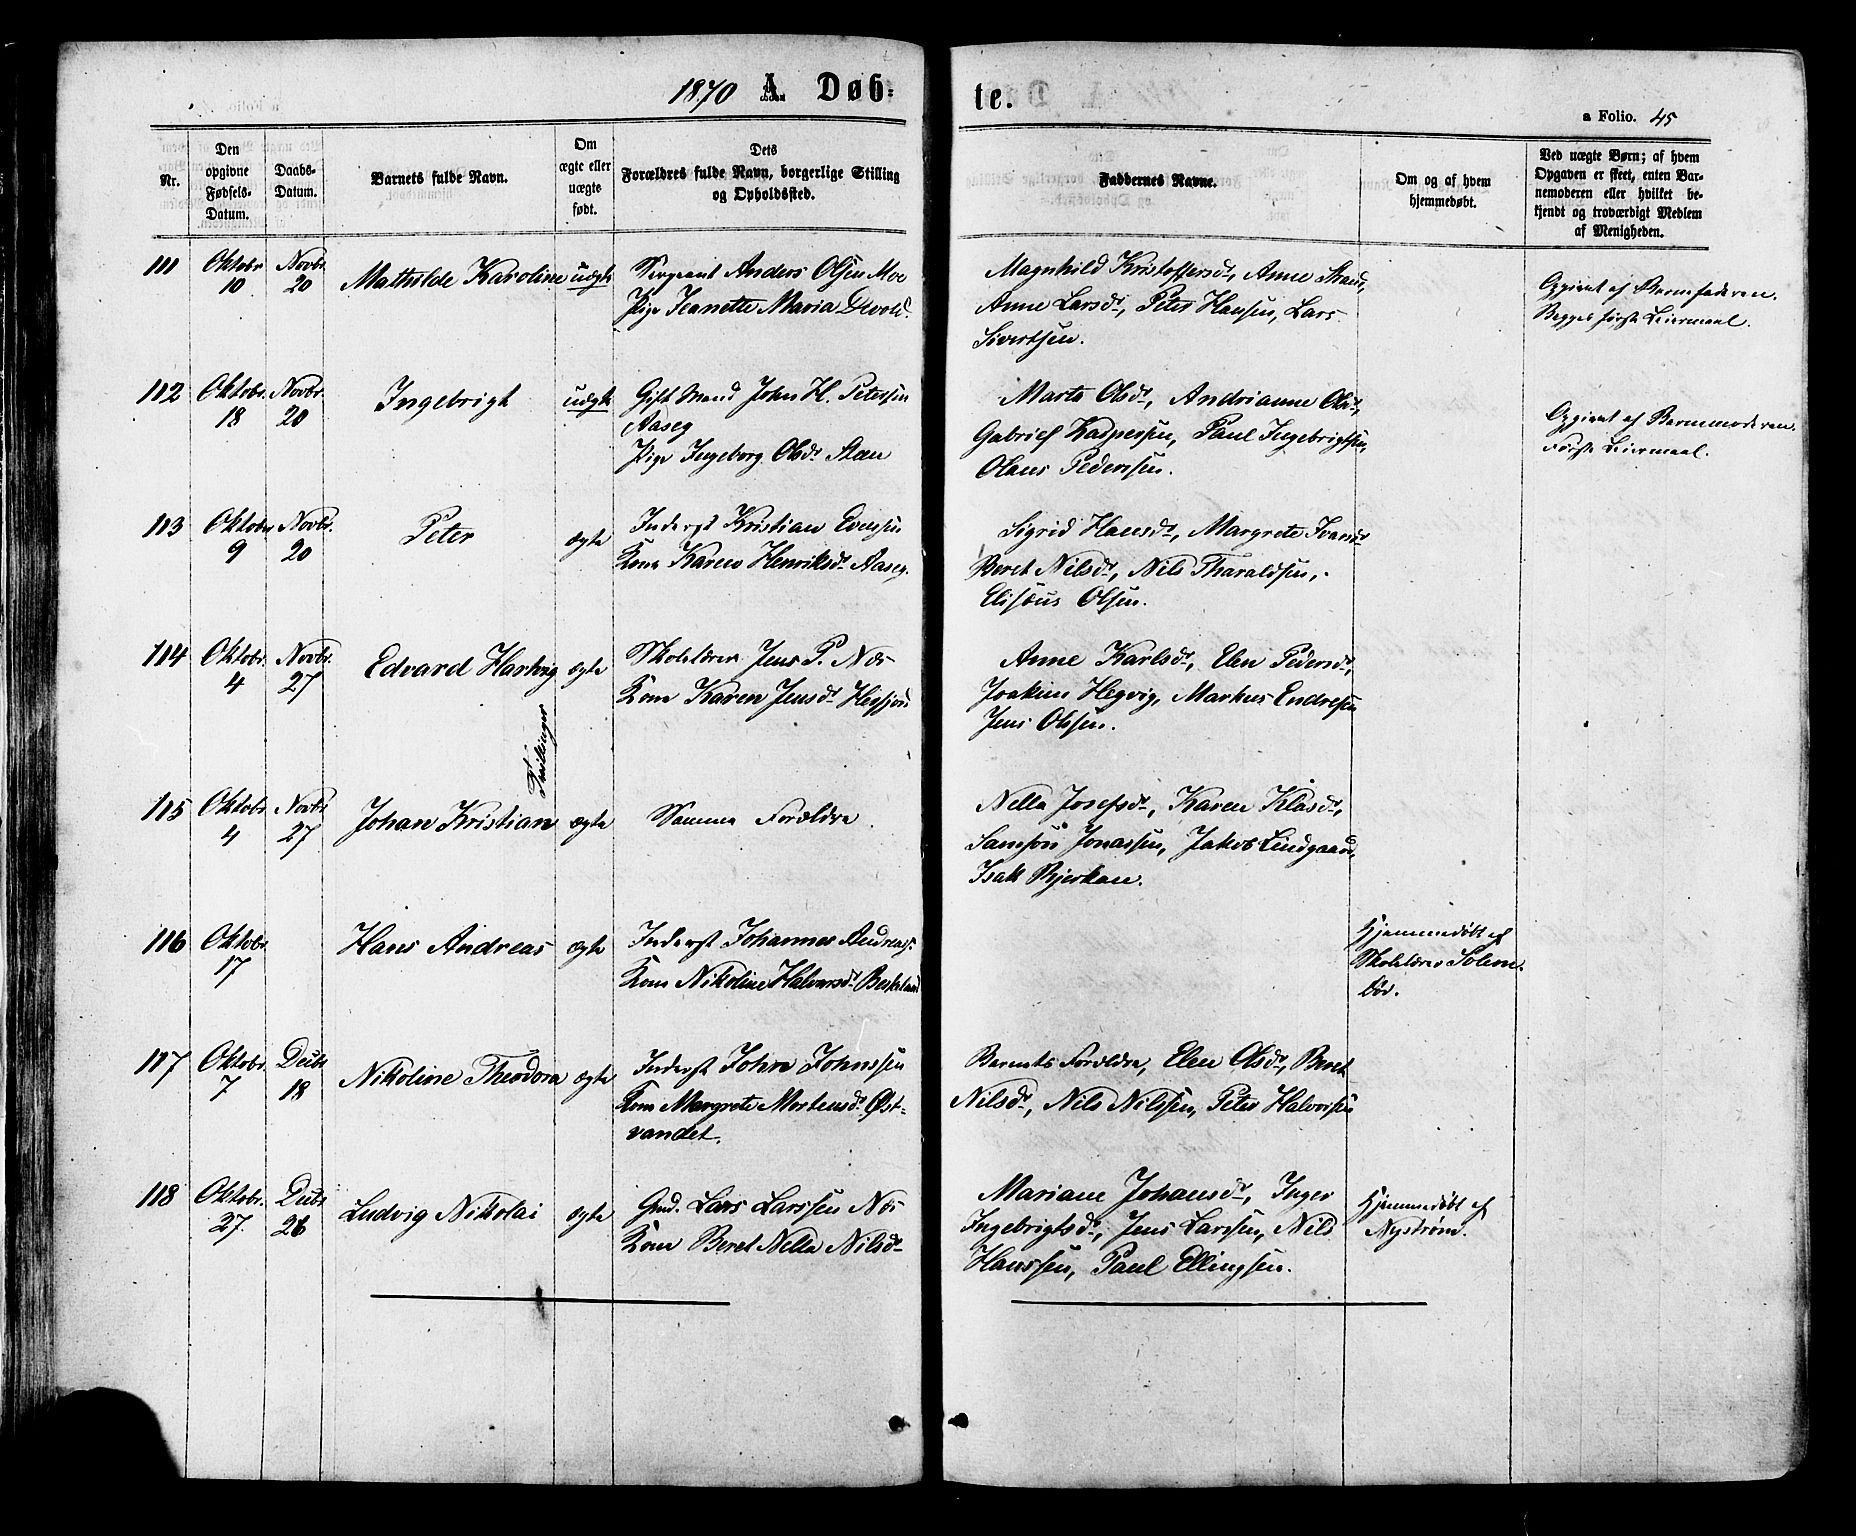 1870 A. Døb=
te.
a Folio. 45
Nr.
Den
opgivne
Fødsels-
Datum.
Daabs-
Datum.
Barnets fulde Navn.
Om
ægte eller
uægte
født.
Dets
Forældres fulde Navn, borgerlige Stilling
og Opholdssted.
Faddernes Navne.
Om og af hvem
hjemmedøbt.
Ved uægte Børn; af hvem
Opgaven er skeet, enten Bar-
nemoderen eller hvilket be-
kjendt og troværdigt Medlem
af Menigheden.
111 Oktobr 10 Novbr. 20 Mathilde Karoline uægte
Sergeant Anders Olsen Moe
Pige Jeanette Maria Devold.
Magnhild Kristoffersdr, Anne Strand,
Anne Larsdr, Peter Hansen, Lars
Sivertsen.
Opgivet af Barnefaderen.
Begges første Leiermaal.
112 Oktobr. 18 Novbr. 20 Ingebrigt uægte
Gift Mand John H. Petersen
Aaseg
Pige Ingeborg Olsdr Steen
Marte Olsdr, Andrianne Olsdr,
Gabriel Kaspersen, Paul Ingebrigtsen,
Olaus Pedersen.
Opgivet af Barnemoderen.
Første Leiermaal.
113 Oktobr 9 Novbr. 20 Peter ægte
Inderst Kristian Evensen
Kone Karen Henriksdr Aaseg.
Sigrid Hansdr, Margrete Ivarsdr
Beret Nilsdr, Nils Tharaldsen,
Elisæus Olsen.
114 Oktobr. 4 Novbr. 27 Edvard Hartvig ægte
Skolelærer Jens P. Nos
Kone Karen Jensdr
Anne Karlsdr, Elen Pedersdr,
Joakim Hegvig, Markus Endresen
Jens Olsen.
Tvillinger
115 Oktobr 4 Novbr 27 Johan Kristian ægte
Samme Forældre.
Nella Josefsdr, Karen Klasdr,
Samson Jonassen, Jakob Lindgaard,
Isak Bjerkan.
116 Oktobr. 17 Hans Andreas ægte
Inderst Johannes Andreass.
Kone Nikoline Halvorsdr
Hjemmedøbt af
Skolelærer Solem.
Død.
117 Oktobr. 7 Decbr 18 Nikoline Theodora ægte
Inderst Johan Johnssen
Kone Margrete Mortensdr Øst-
vandet.
Barnets Forældre, Elen Olsdr, Beret
Nilsdr, Nils Nilssen, Peter Halvorsen
118 Oktobr. 27. Decbr 26 Ludvig Nikolai ægte
Gmd. Lars Larssen Nos
Kone Beret Nella Nilsdr
Mariane Johansdr, Inger
Ingebrigtsdr, Jens Larssen, Nils
Hanssen, Paul Ellingsen.
Hjemmedøbt af
Nystrøm.